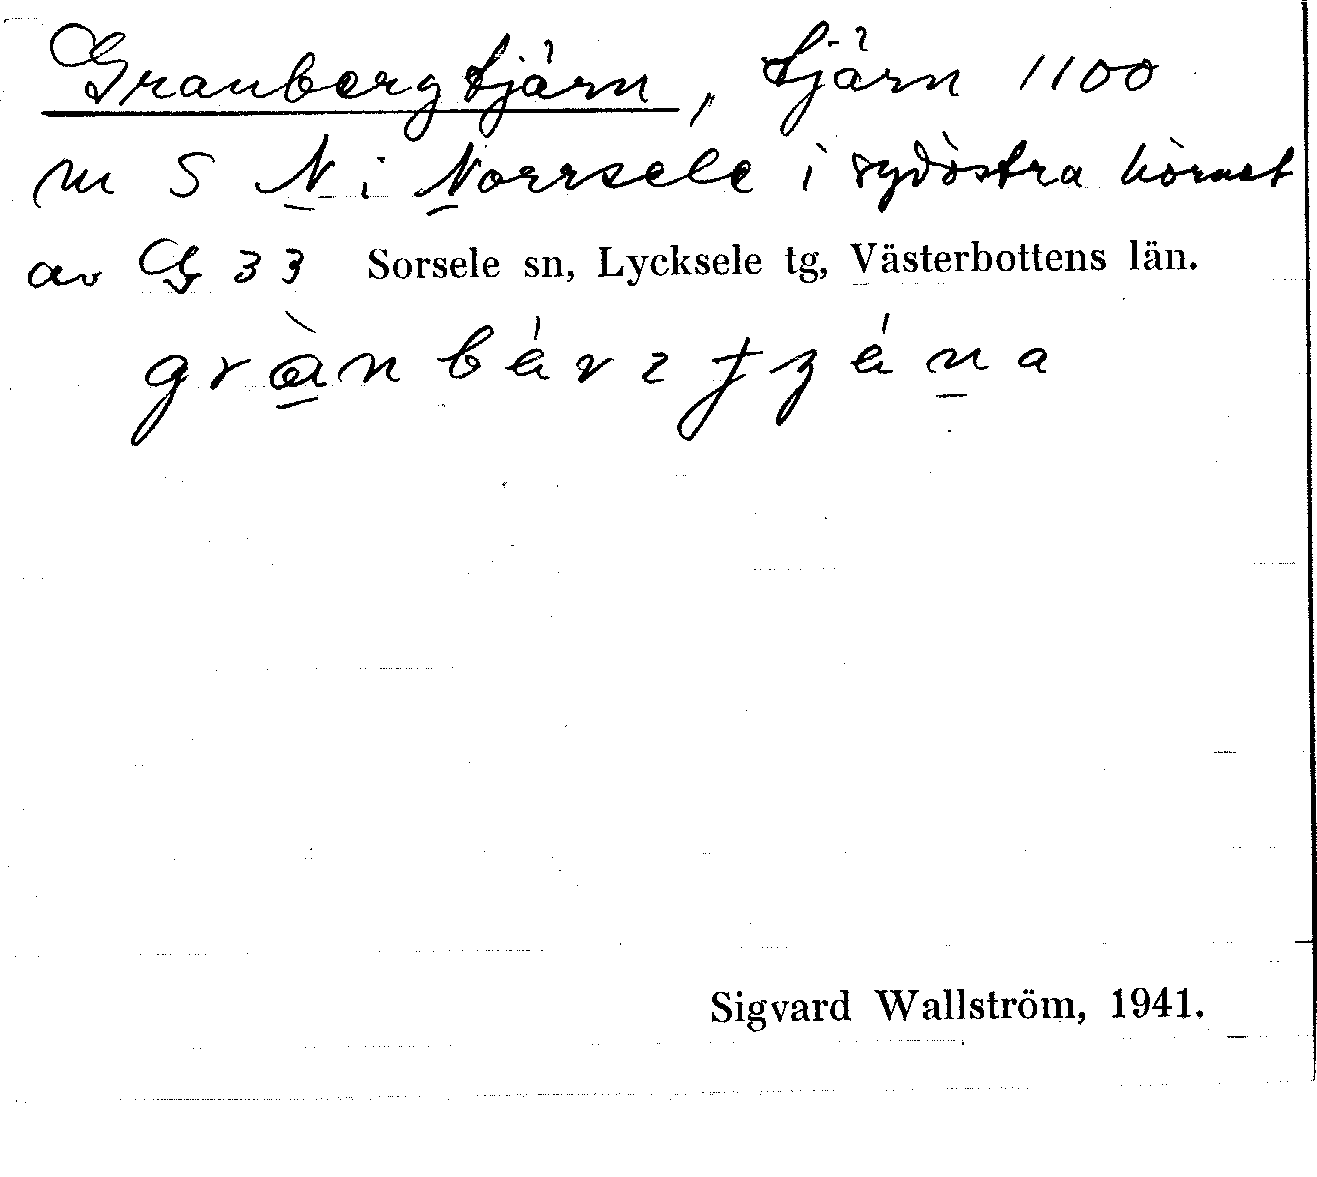 Granbergtjärn, tjärn 1100
m S N i Norrsele i sydöstra hörnet
av G 33 Sorsele sn, Lycksele tg, Västerbottens län.
Sigvard Wallström, 1941.